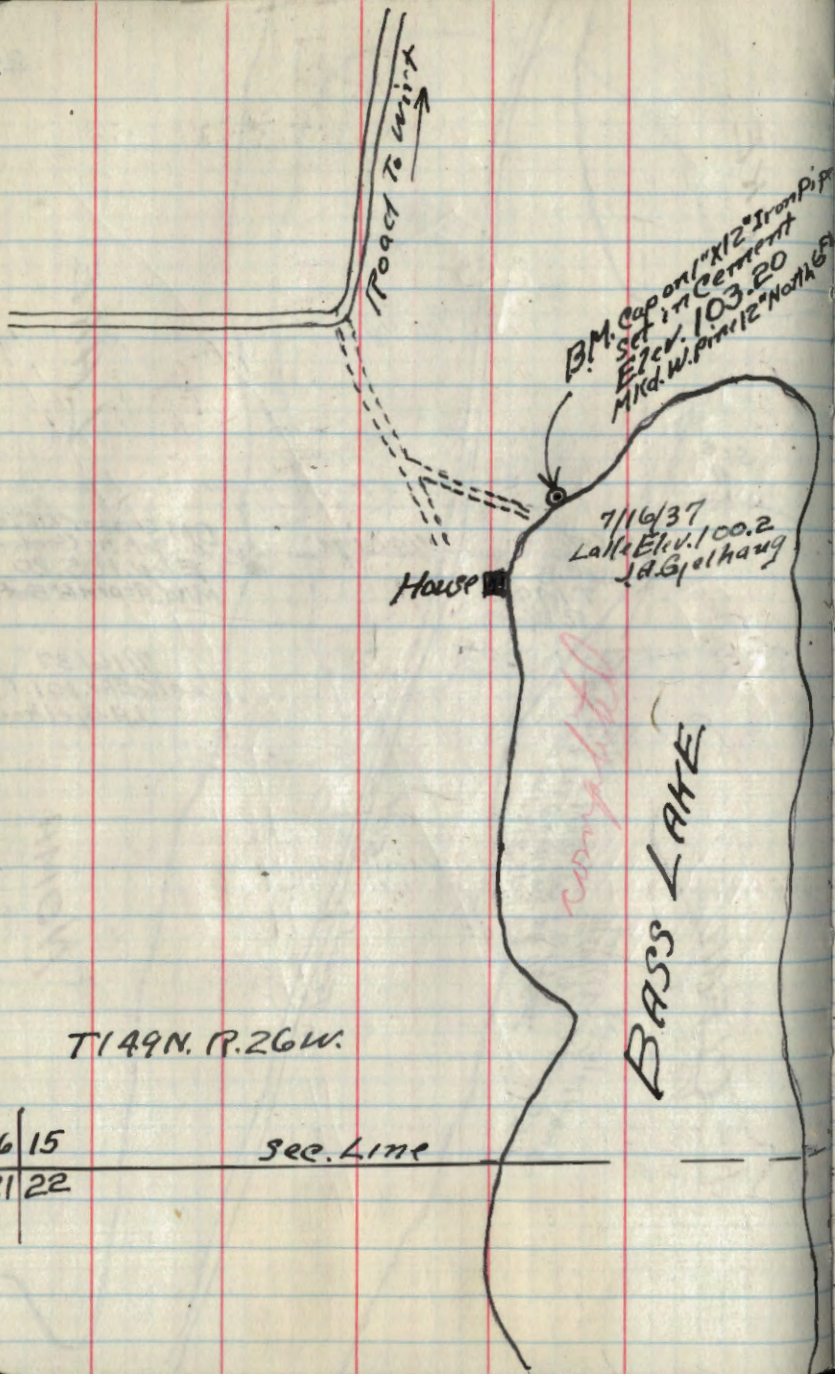 Road To Wirt
B.M. Cap on 1"x12" Iron Pipe
Set in Cement
Elev. 103.20
Mkd. W. Pine 12" North 6 Ft
7/16/37
Lake Elev. 100.2
J.A. Gjelhaug
House
completed
BASS LAKE
T149N. R.26W.
6 15
Sec. Line
1 22